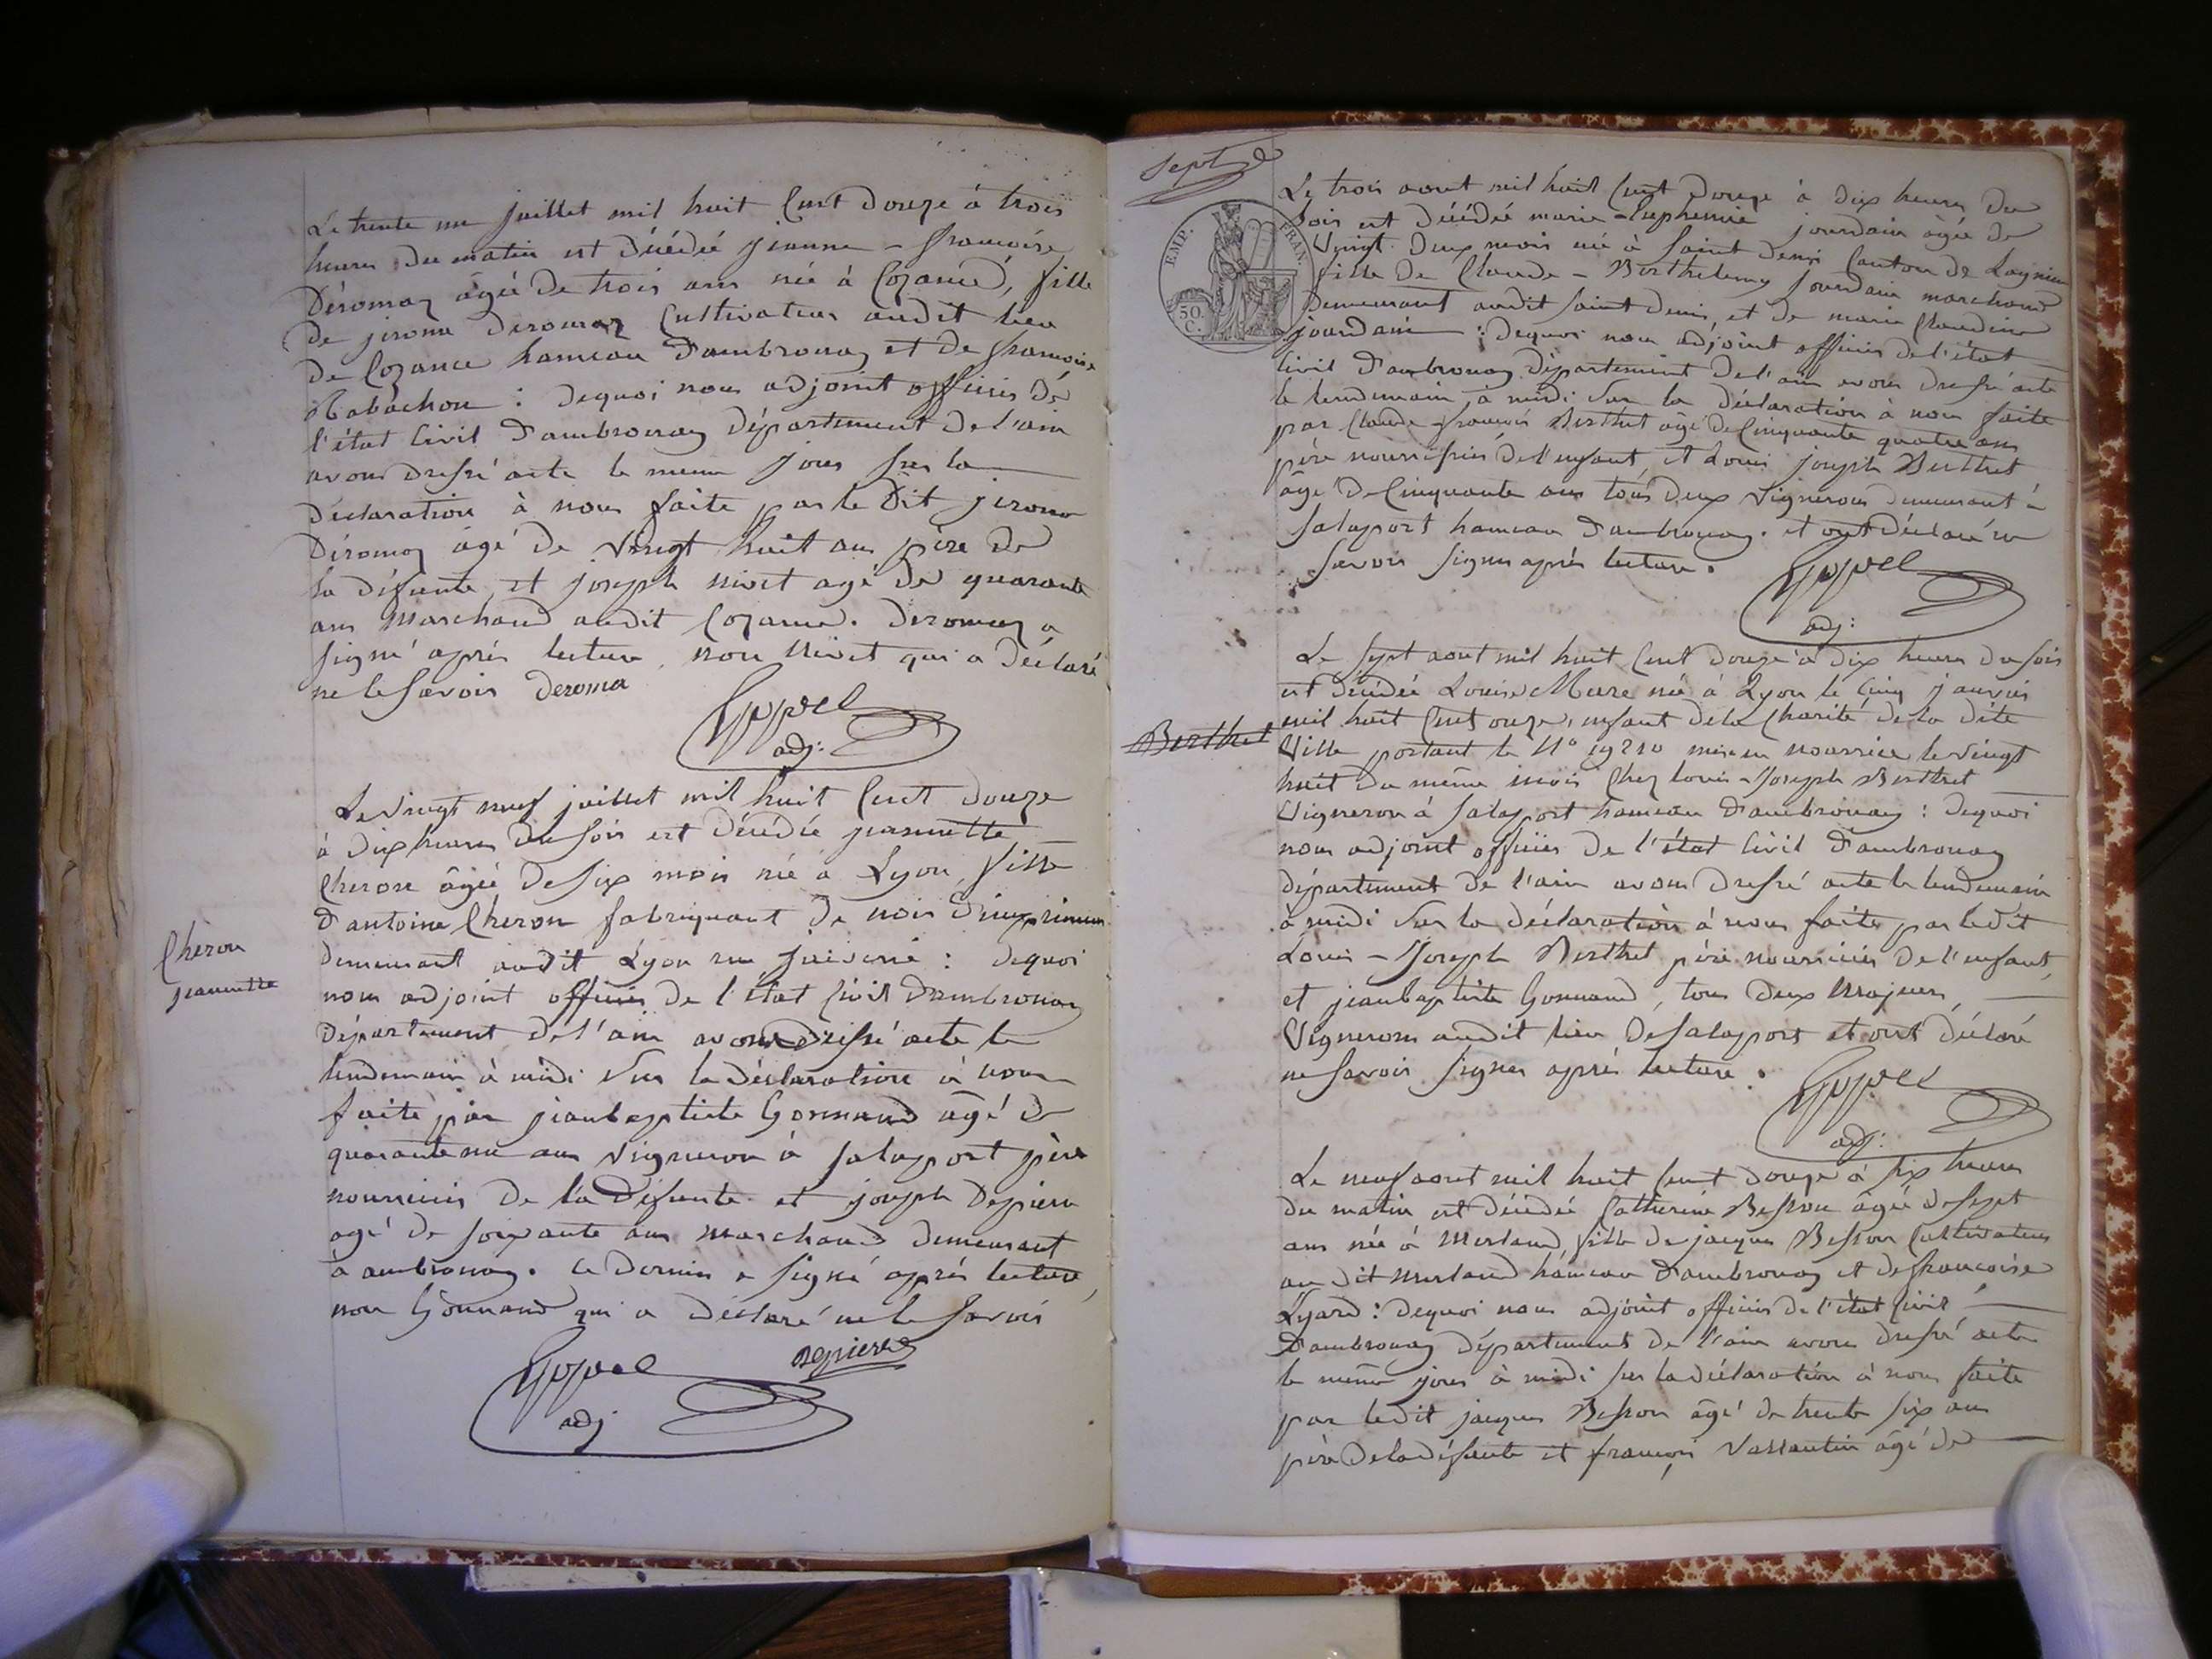 Le trente un juillet mil huit Cent douze à trois
heures du matin est décédée jeanne - francoise
Déromaz âgée de trois ans née à Cozance, fille
de jerome Deromaz Cultivateur audit lieu
de Cozance hameau d'ambronay et de francoise
Rabachon : dequoi nous adjoint officier de
l'état Civil d'ambronay département de l'ain
avons dressé acte le meme jour sur la
déclaration à nous faite par le dit jerome
Déromaz âgé de vingt huit ans père de
la défunte, et joseph nivet agé de quarante
ans Marchand audit Cozance. Deromaz a
signé après lecture, non Nivet qui a déclaré
ne le savoir Deroma
adj:
Le vingt neuf juillet mil huit Cent douze
à dix heures du soir est décédée jeannette
Cheron âgée de six mois née a Lyon, fille
d'antoine Cheron fabriquant de noir d'imprimeur
demeurant audit Lyon rue : dequoi
Chéron
jeannette
nous adjoint officier de l'état Civil d'ambronay
département de l'ain avons dressé acte le
lendemain à midi sur la déclaration à nous
faite par jeanbaptiste Gonnand âgé de
quarante un ans vigneron à Salaport père
nourricier de la défunte et joseph Depiere
agé de soixante ans marchand demeurant
à ambronay. ce dernier a signé après lecture,
non Gonnand qui a déclaré ne le savoir
depiere
adj
sept
EMP. FRAN.
50. C.
Le trois aout mil huit Cent douze à dix heures du
soir est décédée marie - Euphemie jourdain âgée de
Vingt deux mois née à Saint denis Canton de Lagnieu
fille de Claude - Berthelemy jourdain marchand
demeurant audit saint denis, et de marie Claudine
jourdain : dequoi nous adjoint officier de l'état
Civil d'ambronay département de l'ain avons dressé acte
le lendemain à midi sur la déclaration à nous faite
par Claude - francois Berthet âgé de Cinquante quatre ans
père nourricier de l'enfant, et Louis joseph Berthet
âgé de Cinquante ans tous deux vignerons demeurant à
Salaport hameau d'ambronay. et ont déclaré ne
savoir signer après lecture.
adj:
Le sept aout mil huit Cent douze à dix heures du soir
est décédée Louise Mure née à Lyon le Cinq janvier
mil huit Cent onze, enfant de la Charité de la dite
Berthet
Ville portant le N° 19210 mise en nourrice le vingt
huit du même mois Chez Louis - Joseph Berthet
Vigneron à Salaport hameau d'ambronay : dequoi
nous adjoint officier de l'état Civil d'ambronay
département de l'ain avons dressé acte le lendemain
à midi sur la déclaration à nous faite par ledit
Louis - Joseph Berthet père nourricier de l'enfant,
et jeanbaptiste Gonnand, tous deux Majeurs,
Vignerons audit lieu de Salaport et ont déclaré
ne savoir signer après lecture.
adj:
Le neuf aout mil huit Cent douze à six heures
du matin est décédée Catherine Besson âgée de sept
ans née à Merland, fille de jacques Besson Cultivateur
au dit Merland hameau d'ambronay et de francoise
Lyard : dequoi nous adjoint officier de l'état Civil
d'ambronay département de l'ain avons dressé acte
le même jour à midi sur la déclaration à nous faite
par ledit jacques Besson âgé de trente six ans
père de la défunte et francois Vassantin âgé de